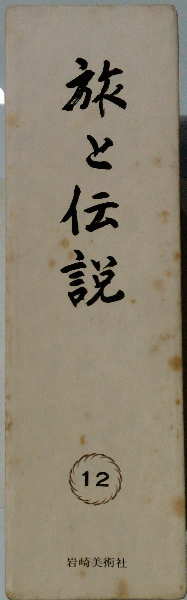 旅と伝説
12
岩崎美術社